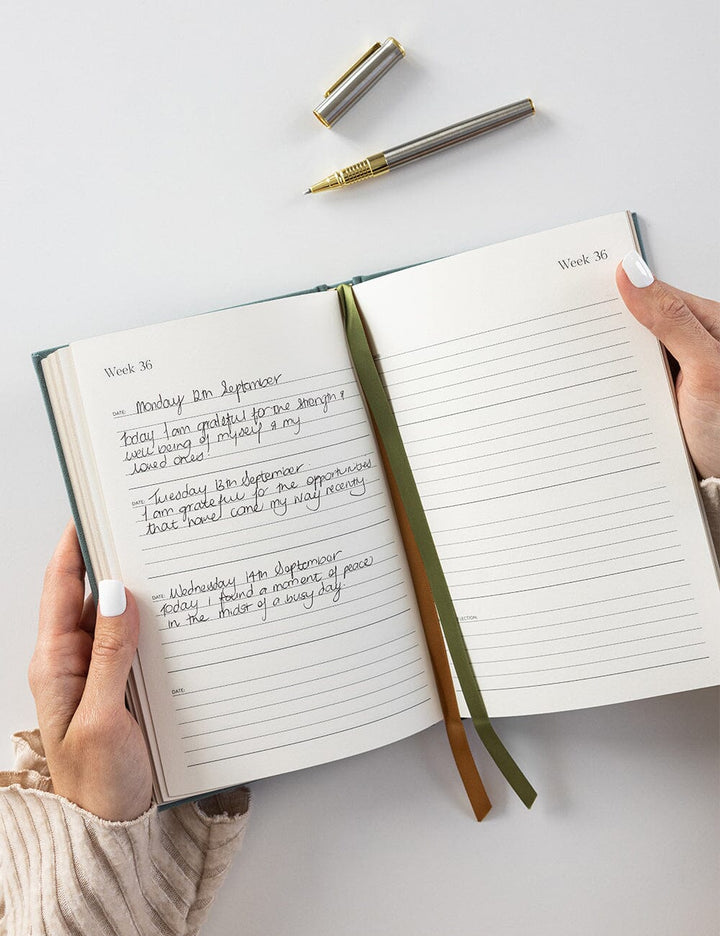 Week 36
DATE: Monday 12th September
Today I am grateful for the strength &
well being of myself & my
loved ones.
DATE: Tuesday 13th September
I am grateful for the opportunities
that have come my way recently
DATE: Wednesday 14th September
Today I found a moment of peace
in the midst of a busy day.
DATE:
Week 36